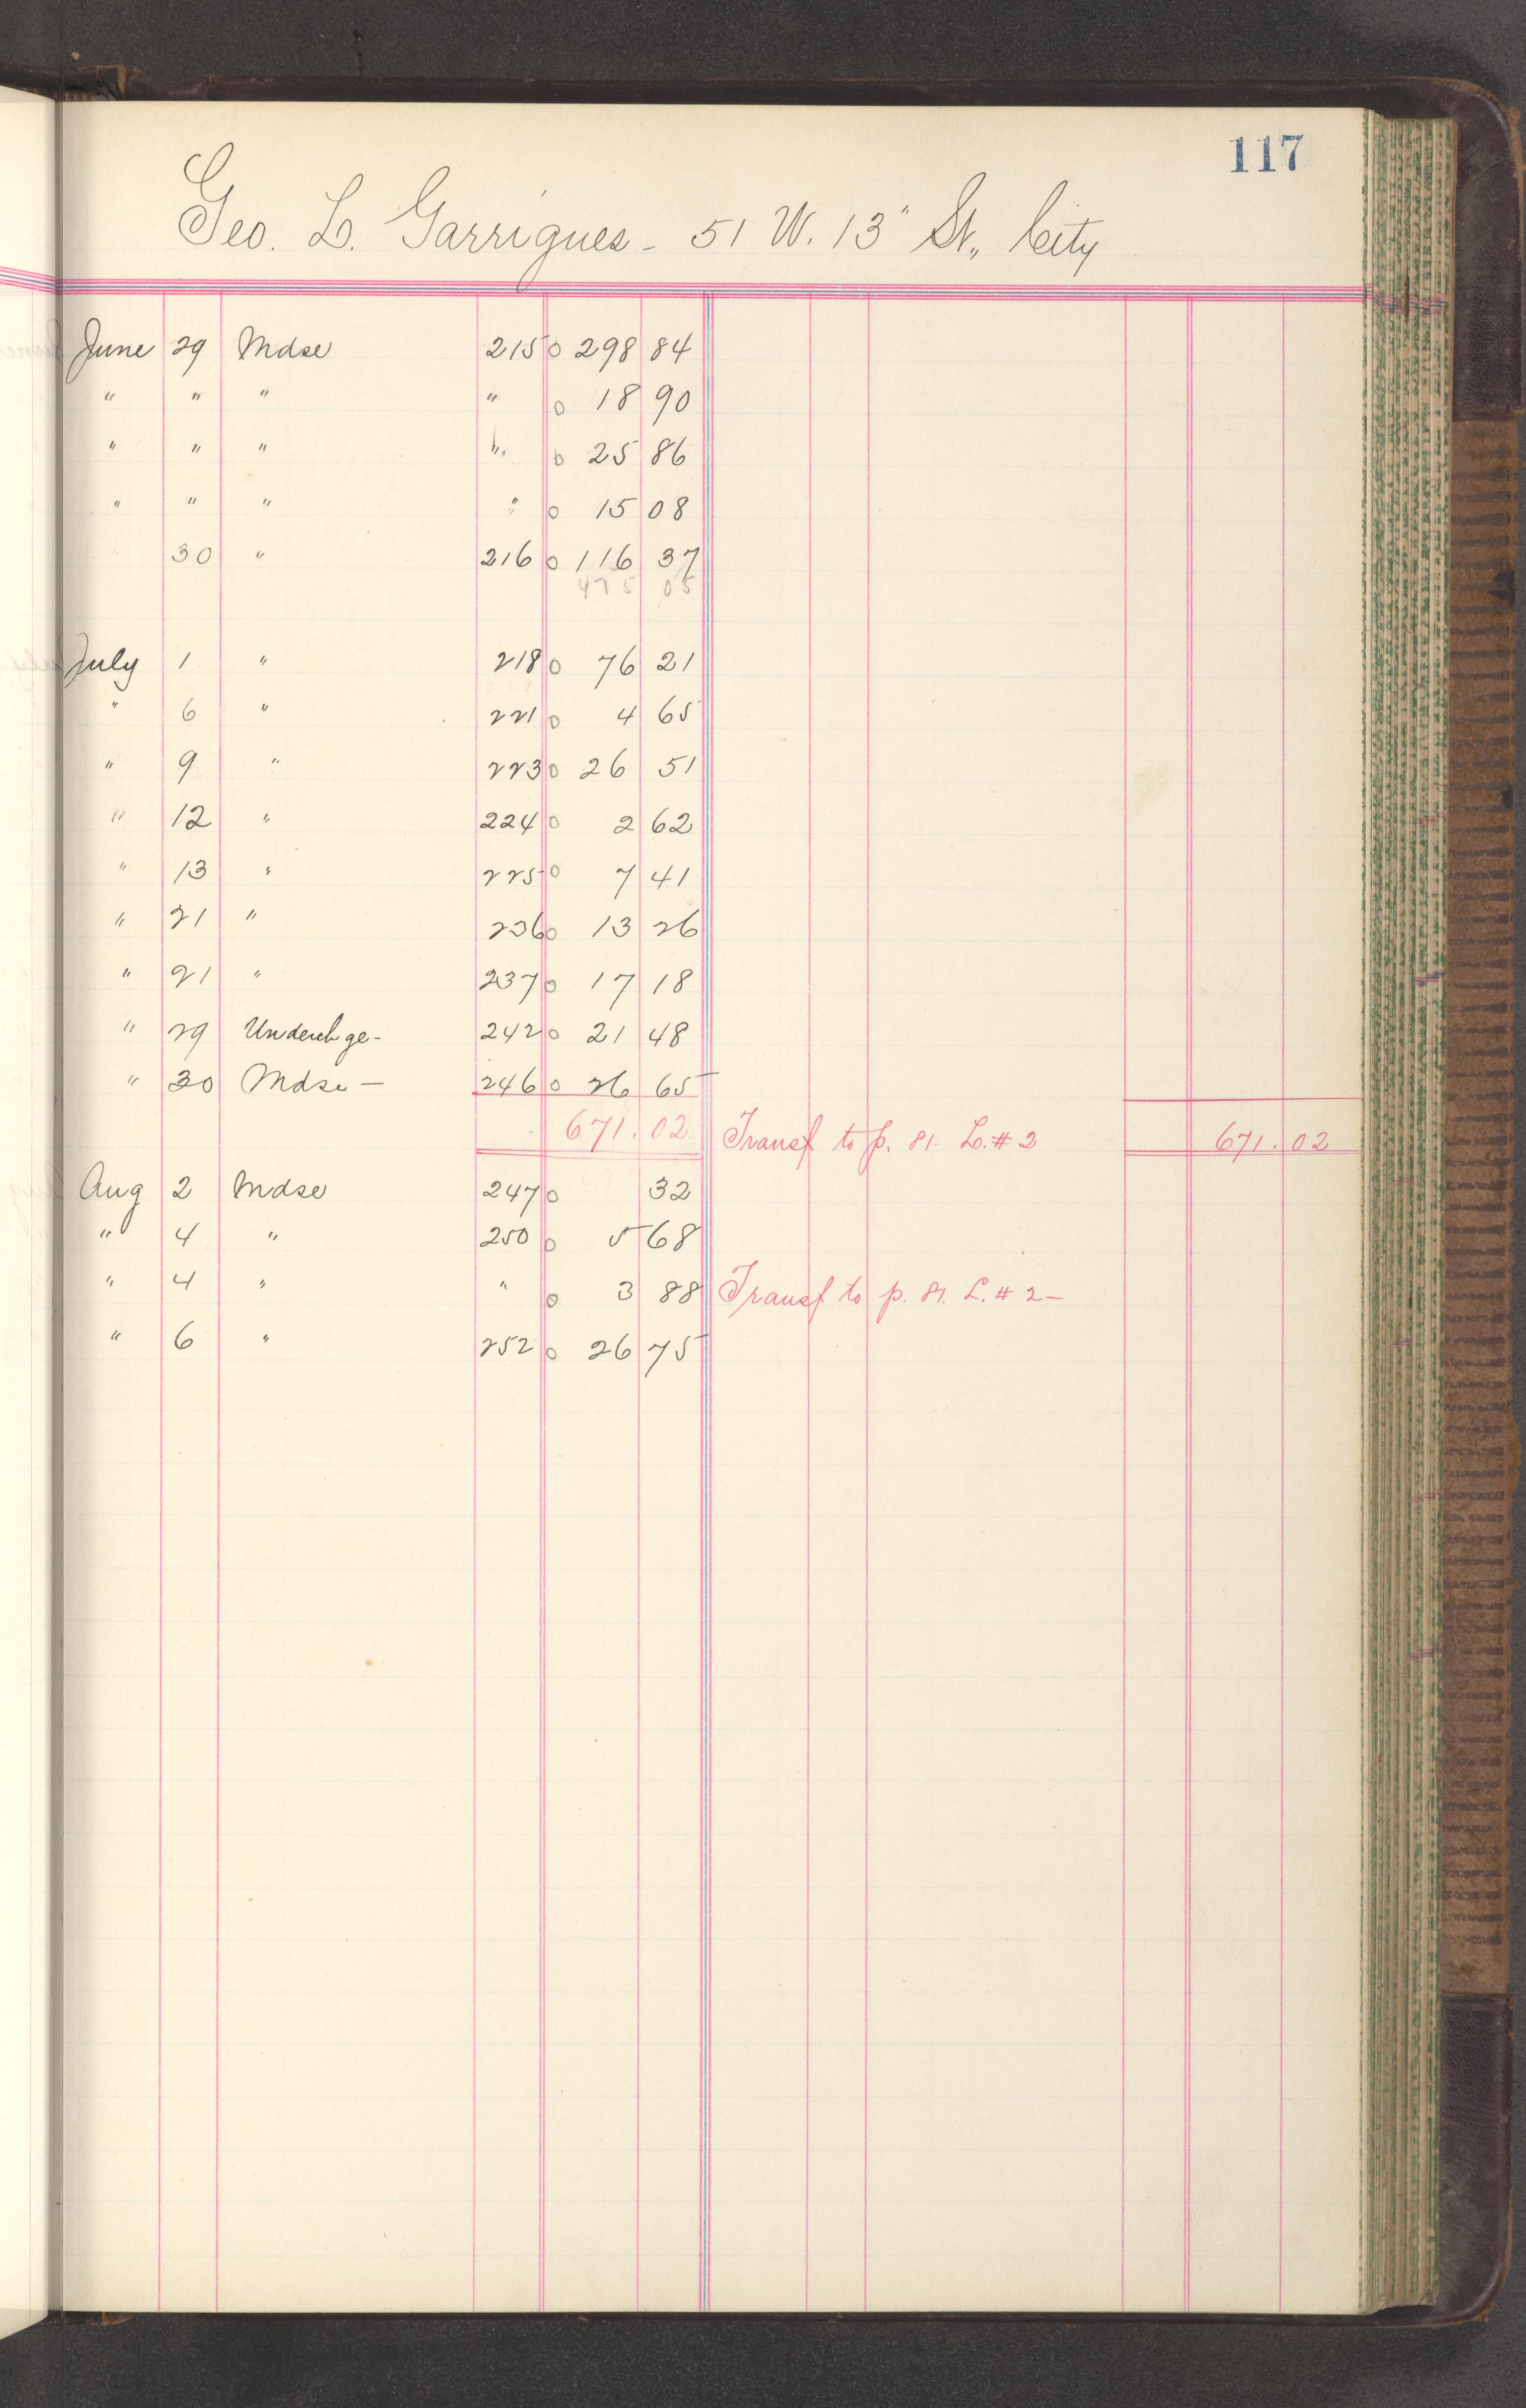 117
Geo. L. Garrigues - 51 W. 13" St., City
June 29 Mdse 215 0 298 84
" " " " 0 18 90
" " " " 0 25 86
" " " " 0 15 08
30 " 216 0 116 37
475 05
July 1 " 218 0 76 21
" 6 " 221 0 4 65
" 9 " 223 0 26 51
" 12 " 224 0 2 62
" 13 " 225 0 7 41
" 21 " 236 0 13 26
" 21 " 237 0 17 18
" 29 Underchge- 242 0 21 48
" 30 Mdse — 246 0 26 65
671.02 Transf to p. 81. L. # 2 671.02
Aug 2 Mdse 247 0 32
" 4 " 250 0 5 68
" 4 " " 0 3 88 Transf to p. 81. L. # 2 —
" 6 " 252 0 26 75